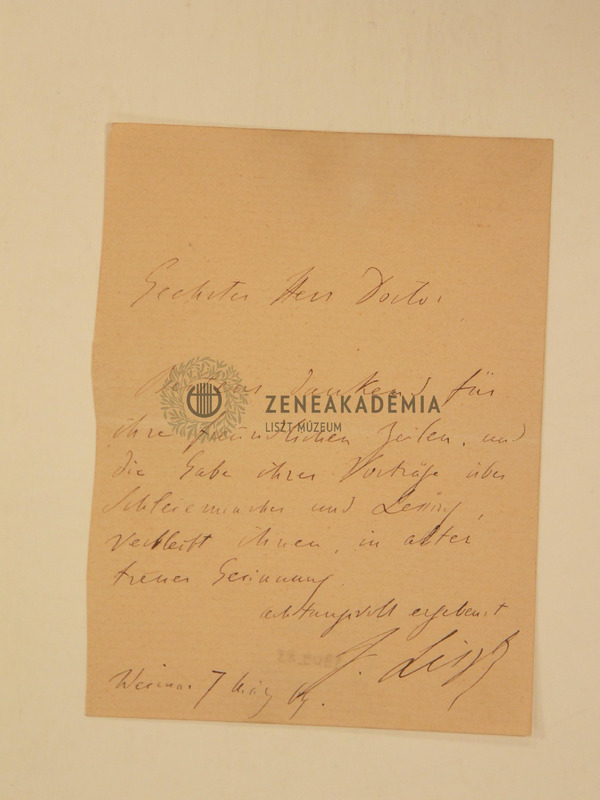 Geehrter Herr Doctor
dankend für
ZENEAKADÉMIA
LISZT MÚZEUM
ihre freundlichen Zeilen, und
die Gabe ihrer Vorträge über
Schleiermacher und Lessing,
verbleibt ihnen, in alter
treuer Gesinnung
achtungsvoll ergebenst
F. Liszt
Weimar 7 März